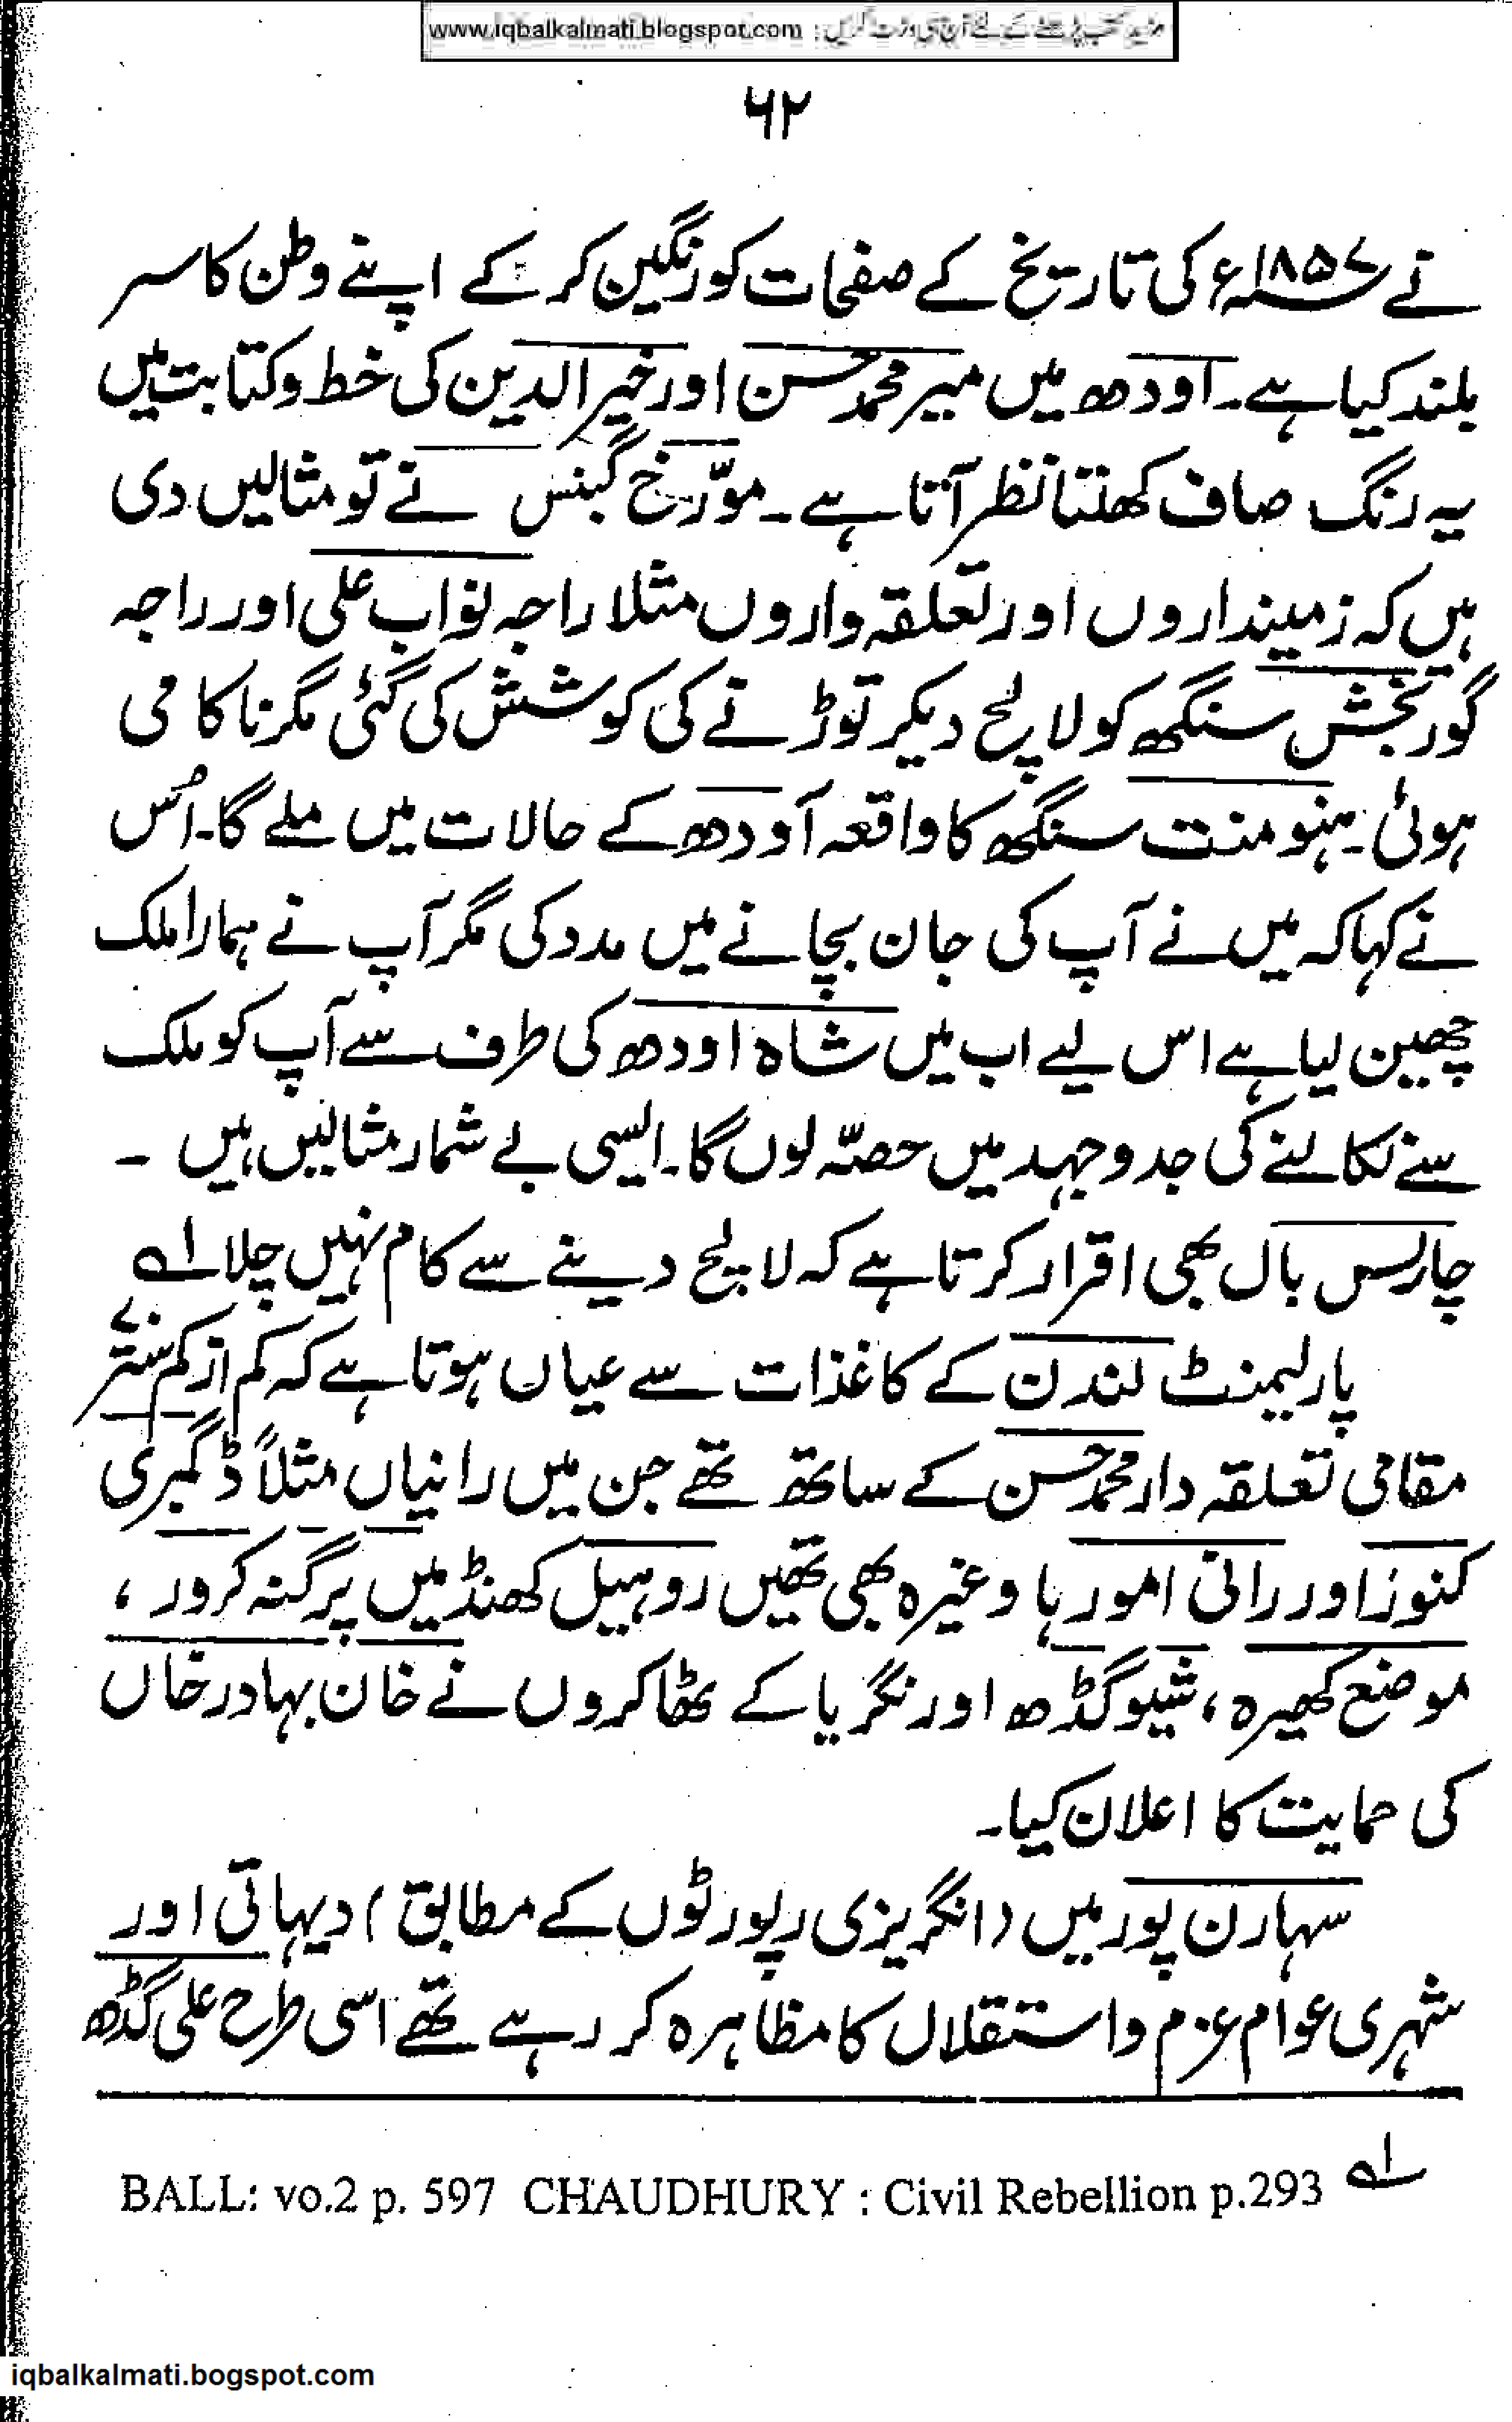 مزید کتب پڑھنے کے لئے آج ہی وزٹ کریں : www.iqbalkalmati.blogspot.com
۶۲
نے ۱۸۵۷ء کی تاریخ کے صفحات کو رنگین کر کے اپنے وطن کا سر
بلند کیا ہے۔ اودھ میں میر محمد حسن اور خیر الدین کی خط و کتابت میں
یہ رنگ صاف کھنتا نظر آتا ہے۔ مورّخ گبنس نے تو مثالیں دی
ہیں کہ زمینداروں اور تعلقہ واروں مثلا راجہ نواب علی اور راجہ
گوربخش سنگھ کو لالچ دیکر توڑنے کی کوشش کی گئی مگر ناکامی
ہوئی۔ ہنومنت سنگھ کا واقعہ آودھ کے حالات میں ملے گا۔ اُس
نے کہا کہ میں نے آپ کی جان بچانے میں مدد کی مگر آپ نے ہمارا ملک
چھین لیا ہے اس لیے اب میں شاہ اودھ کی طرف سے آپ کو ملک
سے نکالنے کی جدوجہد میں حصّہ لوں گا۔ ایسی بے شمار مثالیں ہیں ۔
چارلس بال بھی اقرار کرتا ہے کہ لالچ دینے سے کام نہیں چلا ۱ے
پارلیمنٹ لندن کے کاغذات سے عیاں ہوتا ہے کہ کم از کم ستر ۷۰
مقامی تعلقہ دار محمد حسن کے ساتھ تھے جن میں رانیاں مثلاً ڈگمبری
کنوز اور رانی امورہا وغیرہ بھی تھیں روہیل کھنڈ میں پرگنہ کرور ،
موضع کھیرہ ، شیوگڈھ اور نگریا کے ٹھاکروں نے خان بہادر خاں
کی حمایت کا اعلان کیا۔
سہارن پور میں (انگریزی رپورٹوں کے مطابق) دیہاتی اور
شہری عوام عزم و استقلال کا مظاہرہ کر رہے تھے اسی طرح علی گڈھ
۱ے BALL: vo.2 p. 597 CHAUDHURY : Civil Rebellion p.293
iqbalkalmati.bogspot.com